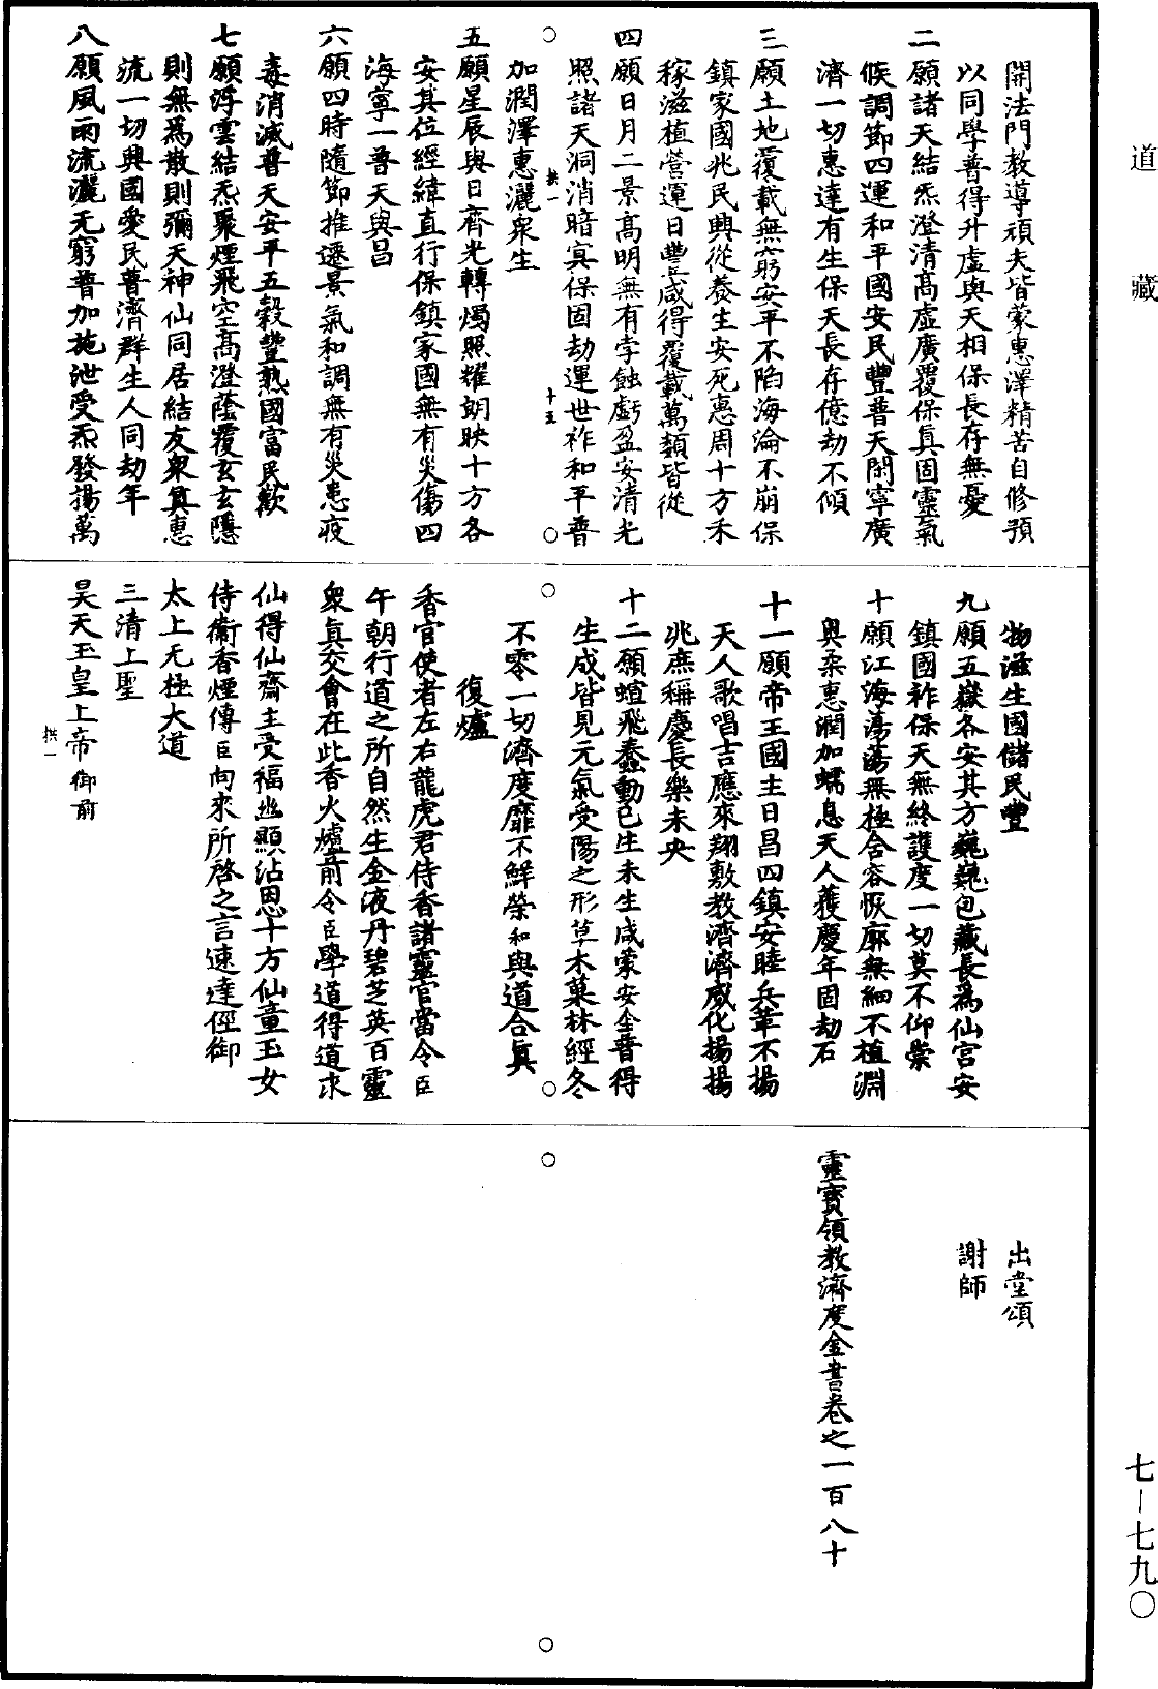 道藏
開法門教導頑夫皆蒙惠澤精苦自修預
以同學普得升虛與天相保長存無憂
二願諸天結炁澄清高虛廣覆保真固靈氣
候調節四運和平國安民豐普天閑寧廣
濟一切惠達有生保天長存億劫不傾
三願土地覆載無窮安平不陷海淪不崩保
鎮家國兆民興從養生安死惠周十方禾
稼滋植營運日豐咸得覆載萬類皆從
四願日月二景高明無有孛蝕虧盈安清光
照諸天洞消暗寘保固劫運世祚和平普
拱一
十五
加潤澤惠灑衆生
五願星辰與日齊光轉燭照耀朗映十方各
安其位經緯直行保鎮家國無有災傷四
海寧一普天興昌
六願四時隨節推遷景氣和調無有災患疫
毒消滅普天安平五穀豐熟國富民歡
七願浮雲結炁聚煙飛空高澄蔭覆玄玄隱
則無爲散則彌天神仙同居結友衆真惠
流一切興國愛民普濟群生人同劫年
八願風雨流灑无窮普加施泄受炁發揚萬
物滋生國儲民豐
九願五嶽各安其方巍巍包藏長爲仙宫安
鎮國祚保天無終護度一切莫不仰崇
十願江海蕩蕩無極含容恢廓無細不植淵
奥柔惠潤加蠕息天人獲慶年固劫石
十一願帝王國主日昌四鎮安睦兵革不揚
天人歌唱吉應來翔敷教濟濟威化揚揚
兆庶稱慶長樂未央
十二願蝖飛蠢動已生未生咸蒙安全普得
生成皆見元氣受陽之形草木菓林經冬
不零一切濟度靡不鮮榮和與道合真
復爐
香官使者左右龍虎君侍香諸靈官當令臣
午朝行道之所自然生金液丹碧芝英百靈
衆真交會在此香火爐前令臣學道得道求
仙得仙齋主受福幽顯沾恩十方仙童玉女
侍衛香煙傳臣向來所啓之言速達俓御
太上无極大道
三清上聖
昊天玉皇上帝御前
拱一
出堂頌
謝師
靈寶領教濟度金書卷之一百八十
七—七九〇